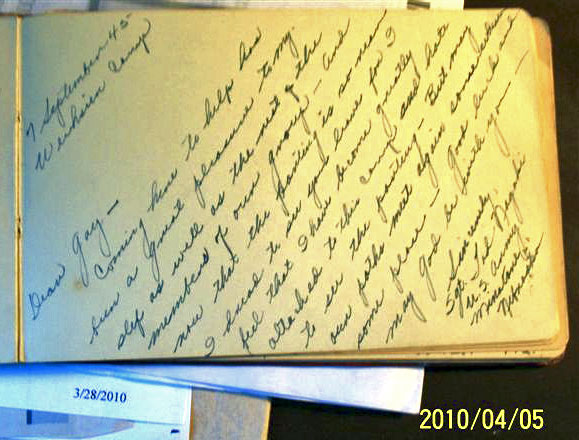 7 September 45-
Weihsien Camp
Dear Gay —
Coming here to help has
been a great pleasure to my
self as well as the rest of the
members of our group — and
now that the parting is so near
I dread to see you leave for I
feel that I have become greatly
attached to this camp and hate
to see the parting - But may
our paths meet again
some place — good luck and
may God be with you —
Sincerely,
Sgt. Tad Nagaki
U.S. Army
Minatare
Nebraska
3/28/2010
2010/04/05